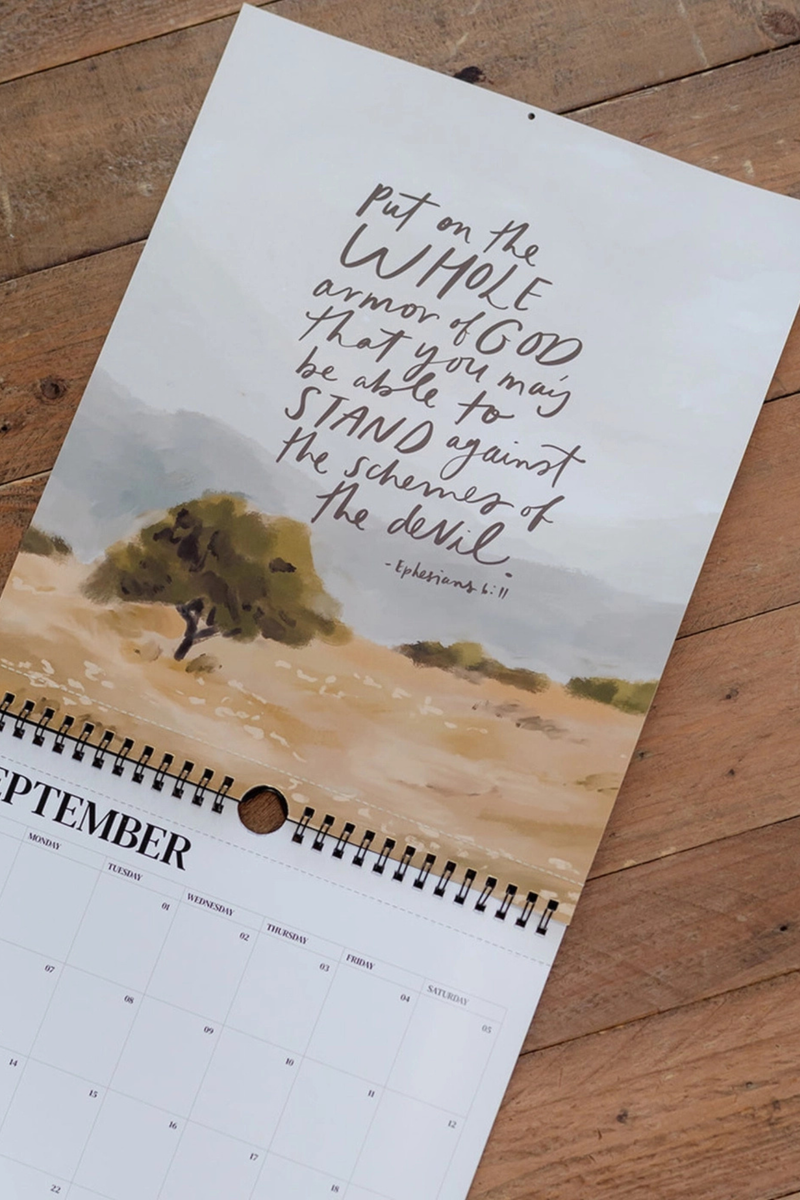 Put on the
WHOLE
armor of GOD
that you may
be able to
STAND against
the schemes of
the devil.
- Ephesians 6:11
EPTEMBER
MONDAY TUESDAY WEDNESDAY THURSDAY FRIDAY SATURDAY
01 02 03 04 05
07 08 09 10 11 12
14 15 16 17 18
22